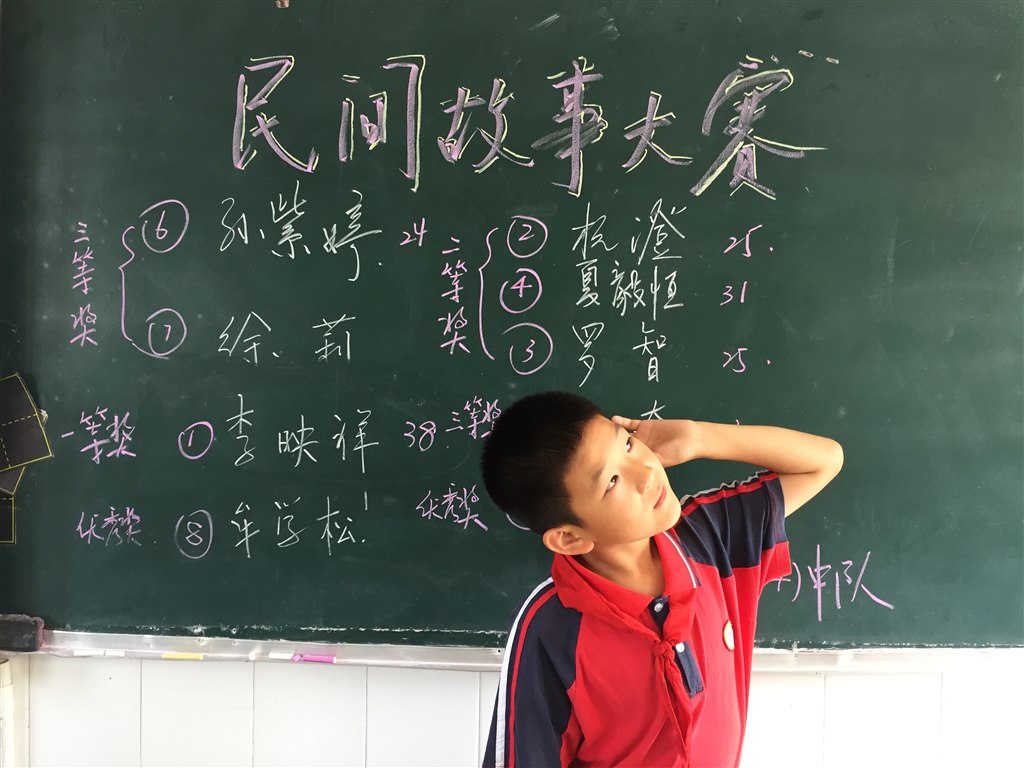 民间故事大赛
三等奖 ⑥ 孙紫婷. 24 二等奖 ② 杭澄 25.
④ 夏毅恒 31
⑦ 徐莉 ③ 罗智 25.
一等奖 ① 李映祥 38 三等奖
优秀奖. ⑧ 牟学松! 优秀奖
中队